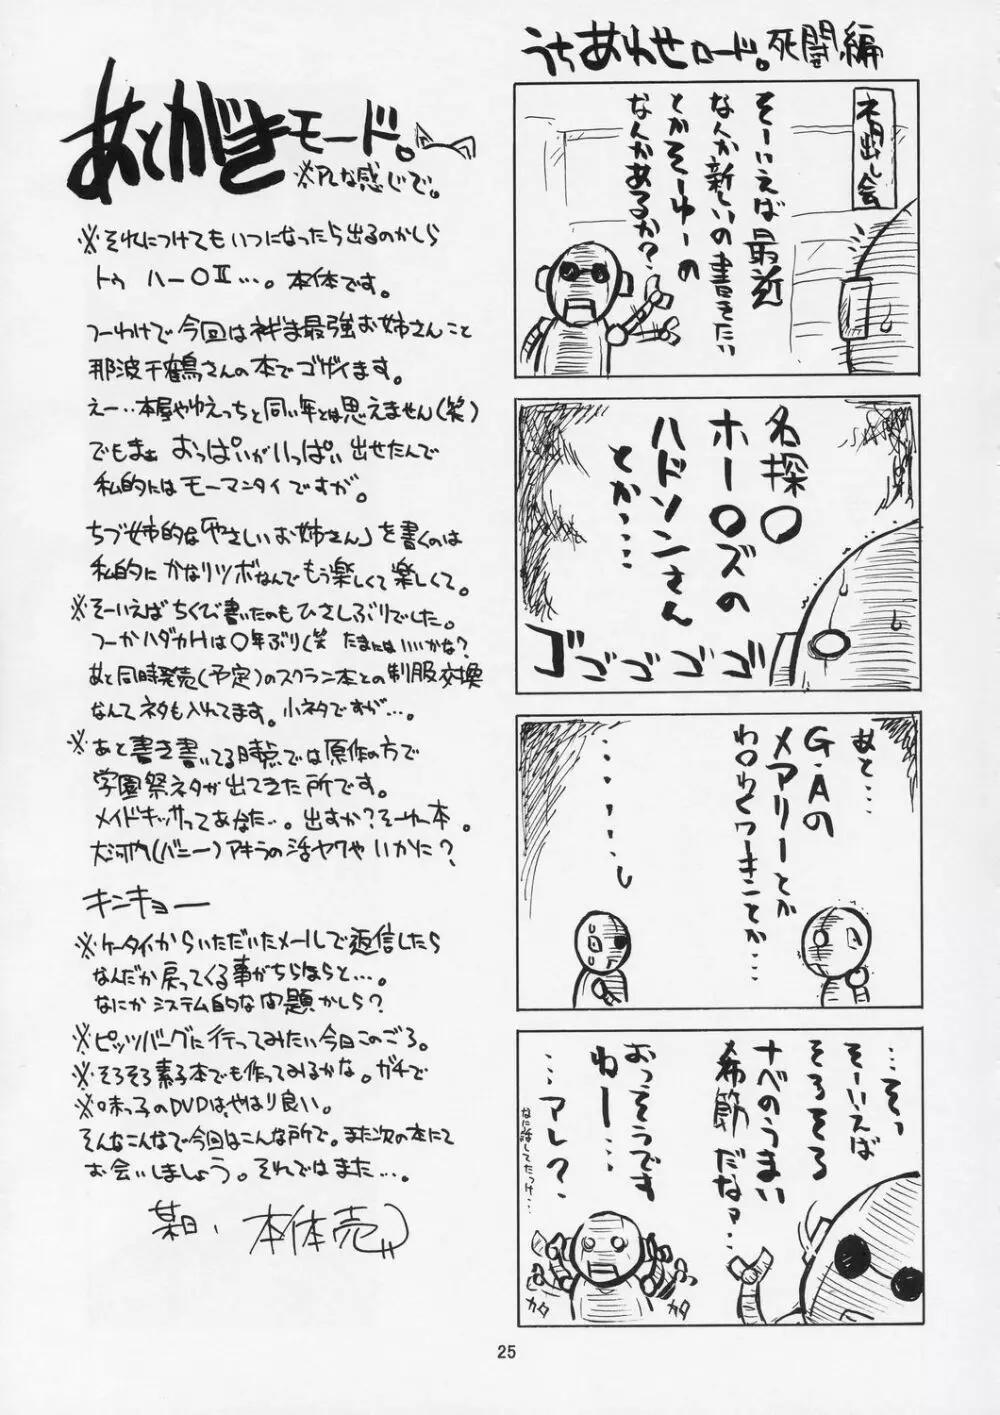 うちあわせロード。死闘編
ネタ出し会
そーいえば最近
なんか新しいの書きたい
とかそーゆーの
なんかあるか?
名探〇
ホー〇ズの
ハドソンさん
とか…
ゴゴゴゴゴ
あと…
G・Aの
メアリーとか
……し
…そっ
そーいえば
そろそろ
ナベのうまい
季節だなァ…
おっそうです
ねー…
…アレ?
なに話してたっけ…
カタ
カタ
あとがきモード。
※アレな感じで。
※それにつけてもいつになったら出るのかしら
トゥ ハー〇Ⅱ…。本体です。
つーわけで今回はネギま最強お姉さんこと
那波千鶴さんの本でゴザイます。
えー…本屋やゆえっちと同い年とは思えません(笑)
でもまぁ おっぱいがいっぱい 出せたんで
私的にはモーマンタイですが。
ちづ姉的な「やさしいお姉さん」を書くのは
私的にかなりツボなんでもう楽しくて楽しくて。
※そーいえばちくび書いたのもひさしぶりでした。
つーかハダカHは〇年ぶり(笑 たまにはいいかな?
あと同時発売(予定)のスクラン本との制服交換
なんてネタも入れてます。小ネタですが…。
※あと書き書いてる時点では原作の方で
学園祭ネタが出てきた所です。
メイドキッサってあなた…。出すか?そーゆー本。
大河内(バニー)アキラの活ヤクやいかに?
キンキョー
※ケータイからいただいたメールで返信したら
なんだか戻ってくる事がちらほらと…。
なにかシステム的な問題かしら?
※ピッツバーグに行ってみたい今日このごろ。
※そろそろ素子本でも作ってみるかな。ガチで
※味っ子のDVDは、やはり良い。
そんなこんなで今回はこんな所で。また次の本にて
お会いしましょう。それではまた…。
某日、本体売
25